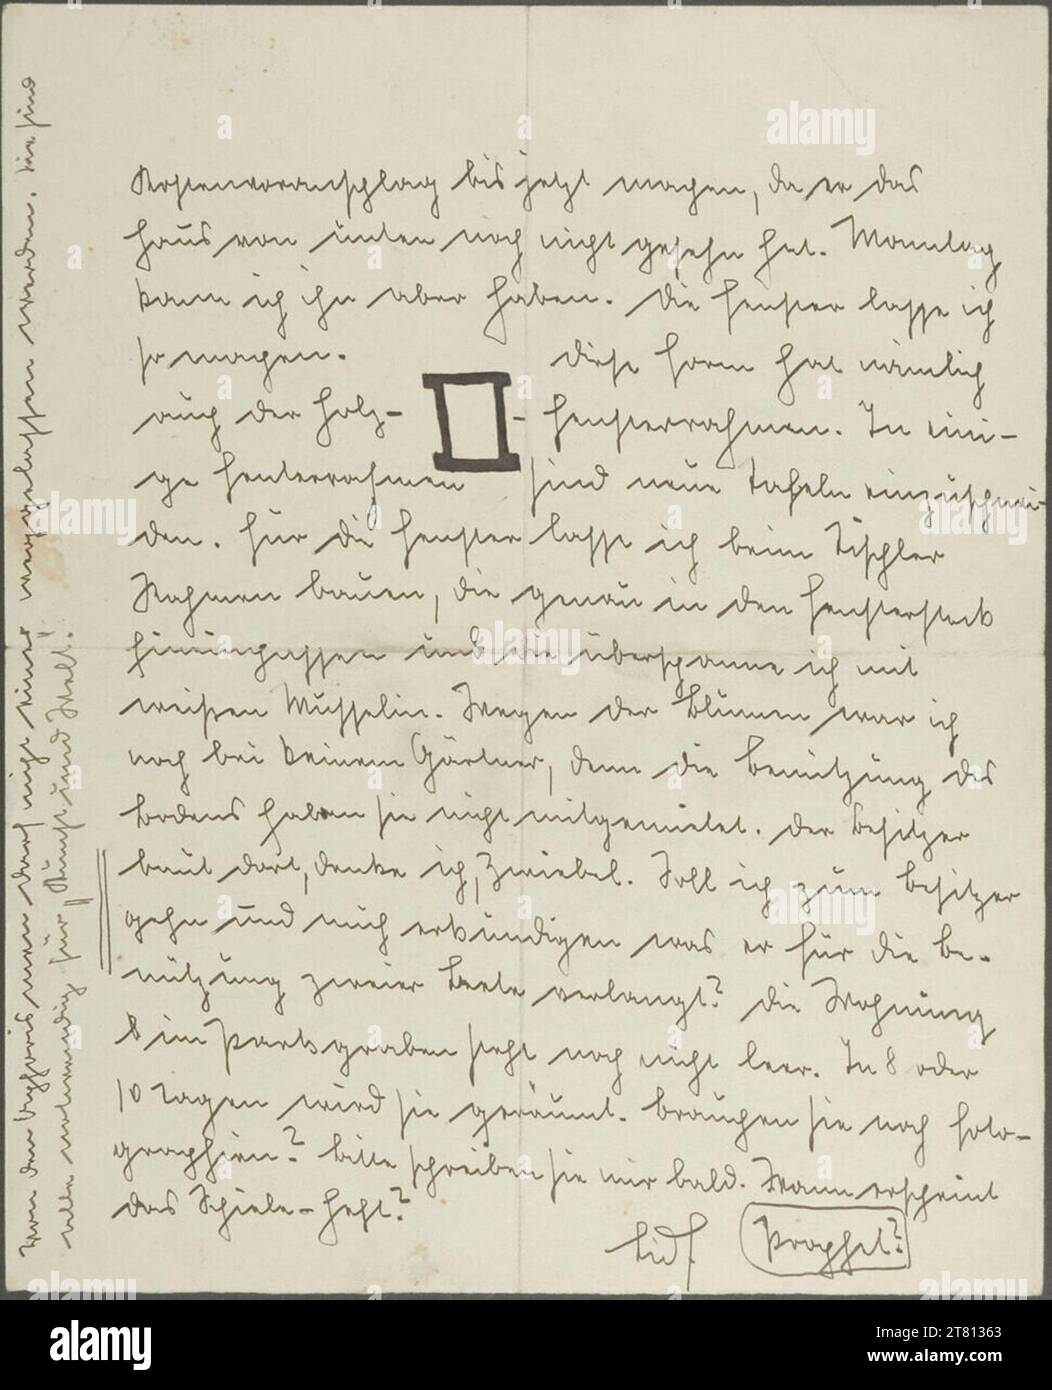 Kostenvoranschlag bis jetzt machen, da er das
Haus von unten noch nicht gesehn hat. Montag
kann ich ihn aber haben. Die Fenster lasse ich
so machen. Diese Form hat nämlich
auch der Holz- - Fensterrahmen. In eini-
ge Fensterrahmen sind neue Tafeln einzuschnei-
den. Für die Fenster lasse ich beim Tischler
Rahmen bauen, die genau in den Fensterstock
hineinpassen und die überspanne ich mit
weißen Musselin. Wegen der Blumen war ich
noch bei keinem Gärtner, denn die Benützung des
Bodens haben sie nicht mitgemietet. Der Besitzer
baut dort, denke ich, Zwiebel. Soll ich zum Besitzer
gehn und mich erkundigen was er für die Be-
nützung zweier Beete verlangt? Die Wohnung
im Parkgraben steht noch nicht leer. In 8 oder
10 Tagen wird sie geräumt. Brauchen sie noch Foto-
graphien? Bitte schreiben sie mir bald. Wann erscheint
das Schiele-Heft?
Lid. Prophet?
Von den Aphorismen darf nicht einer weggelassen werden. Sie sind
alle notwendig für "Kunst und Welt".
alamy
Image ID: 2T81363
www.alamy.com